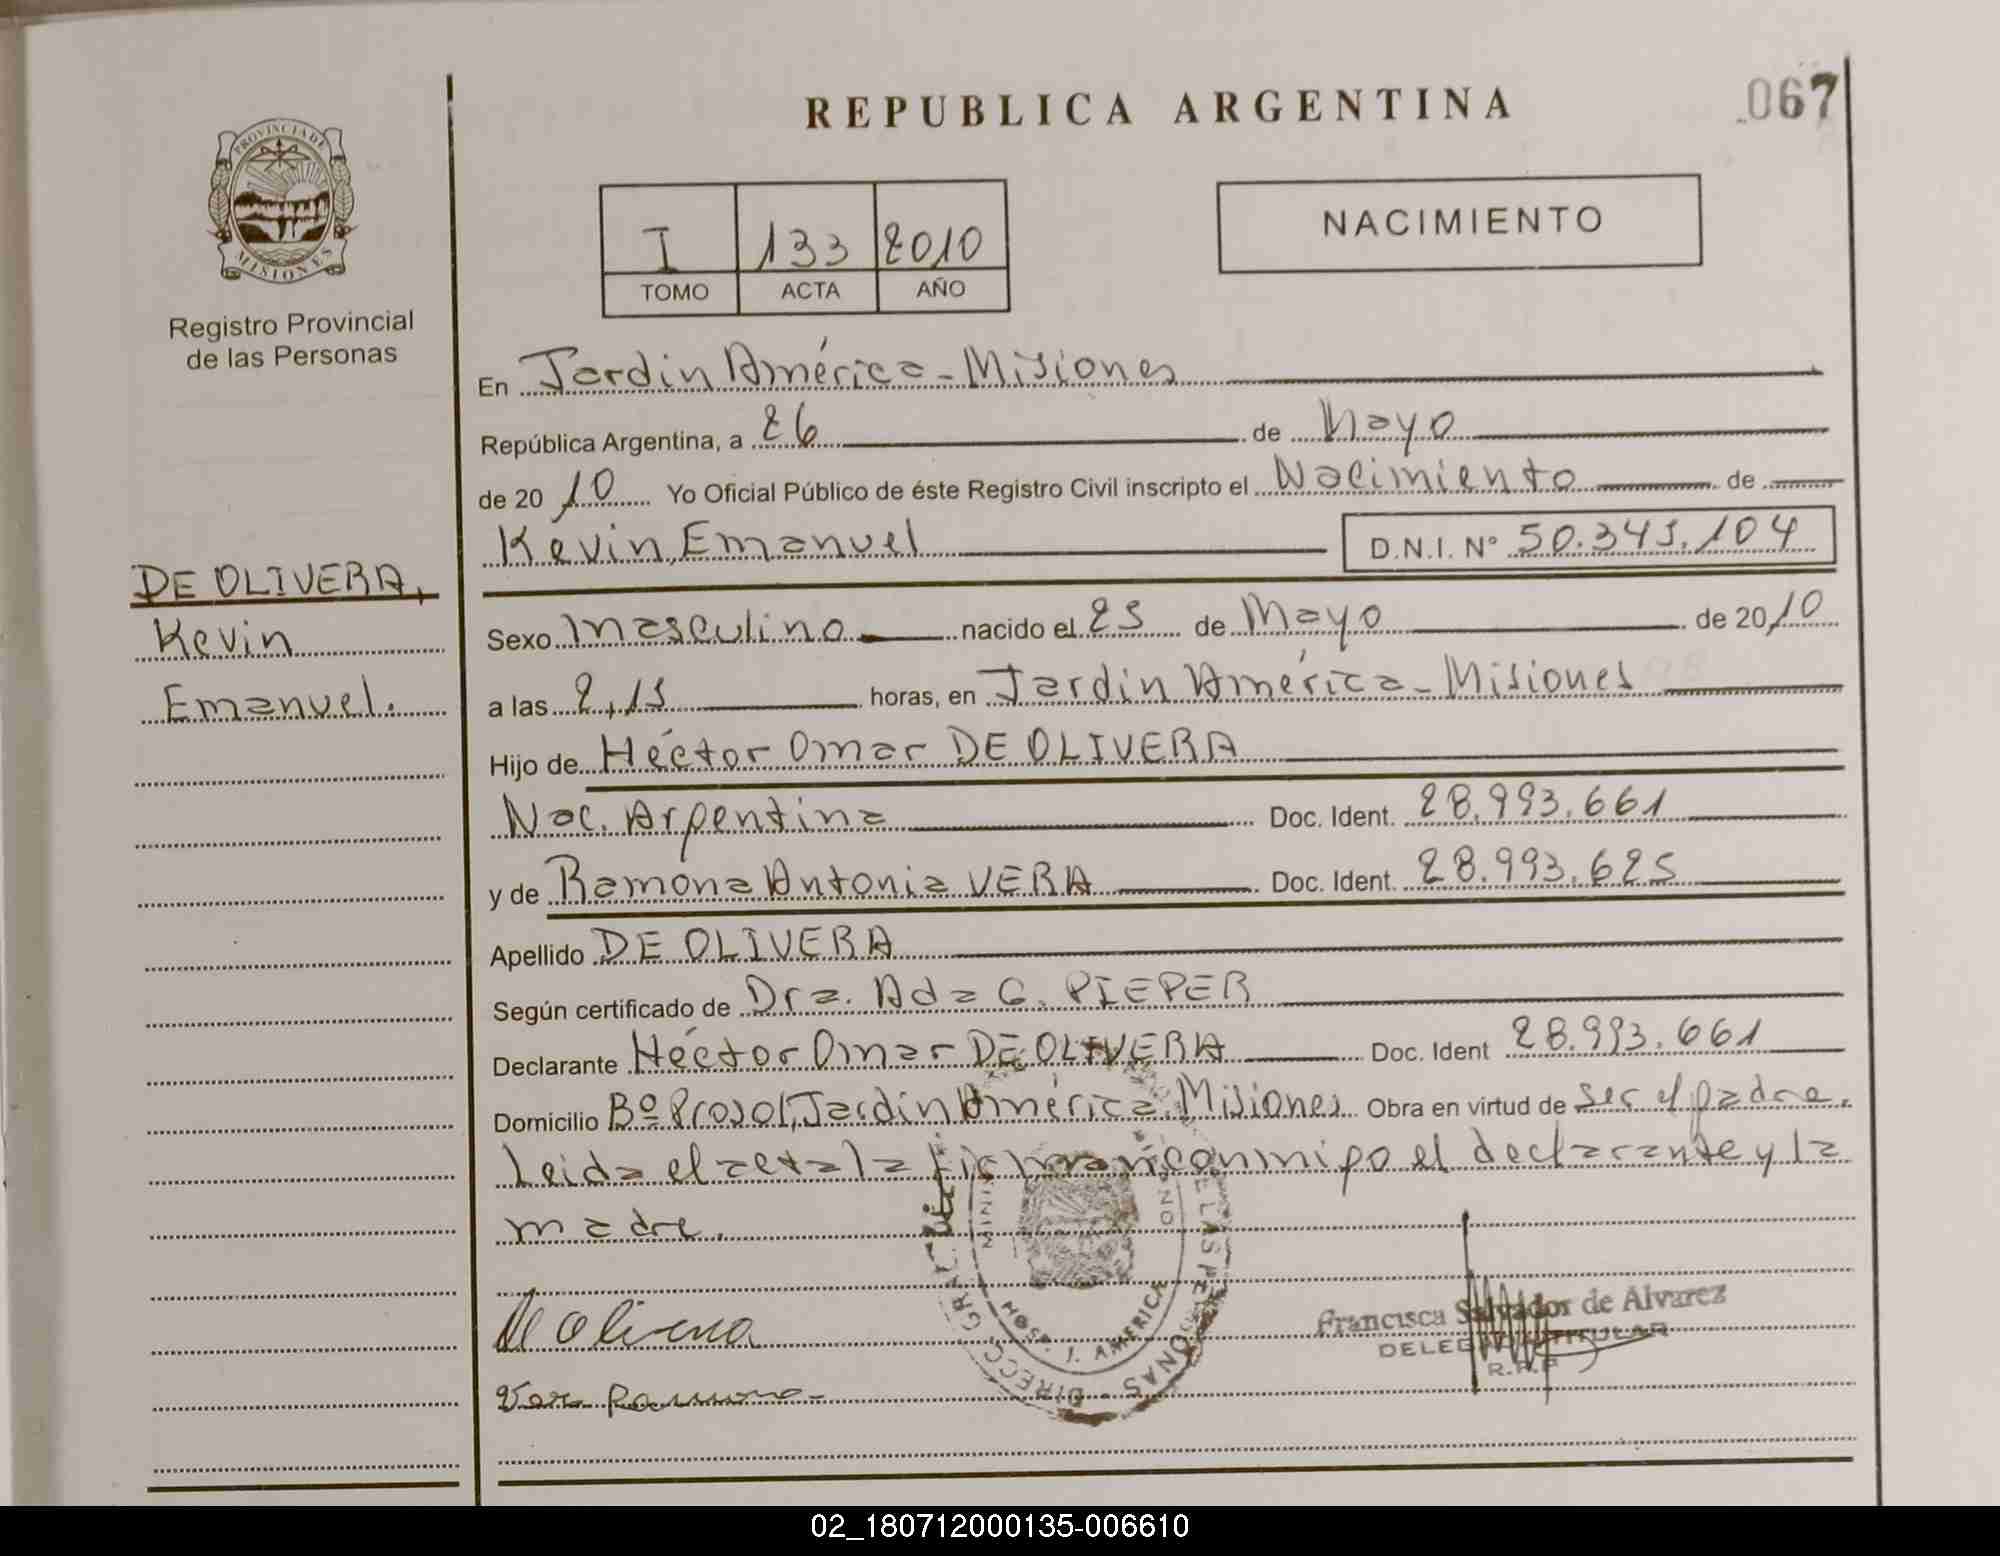 REPUBLICA ARGENTINA
067
PROVINCIA DE
MISIONES
Registro Provincial
de las Personas
I 133 2010
TOMO ACTA AÑO
NACIMIENTO
En Jardin América - Misiones
República Argentina, a 26 de Mayo
de 20 10 Yo Oficial Público de éste Registro Civil inscripto el Nacimiento de
Kevin Emanuel D.N.I. Nº 50.345.104
DE OLIVERA,
Kevin
Emanuel.
Sexo Masculino nacido el 25 de Mayo de 20 10
a las 2,15 horas, en Jardin América - Misiones
Hijo de Héctor Omar DE OLIVERA
Nac. Argentina Doc. Ident. 28.993.661
y de Ramona Antonia VERA Doc. Ident. 28.993.625
Apellido DE OLIVERA
Según certificado de Dra. Ada G. PIEPER
Declarante Héctor Omar DE OLIVERA Doc. Ident 28.993.661
Domicilio Bº Prosol, Jardin América, Misiones Obra en virtud de ser el padre.
Leida el acta la firman conmigo el declarante y la
madre.
De Olivera
Francisca Salvador de Alvarez
DELEGADA TITULAR
R.P.P
HOSP. J. AMERICA
02_180712000135-006610